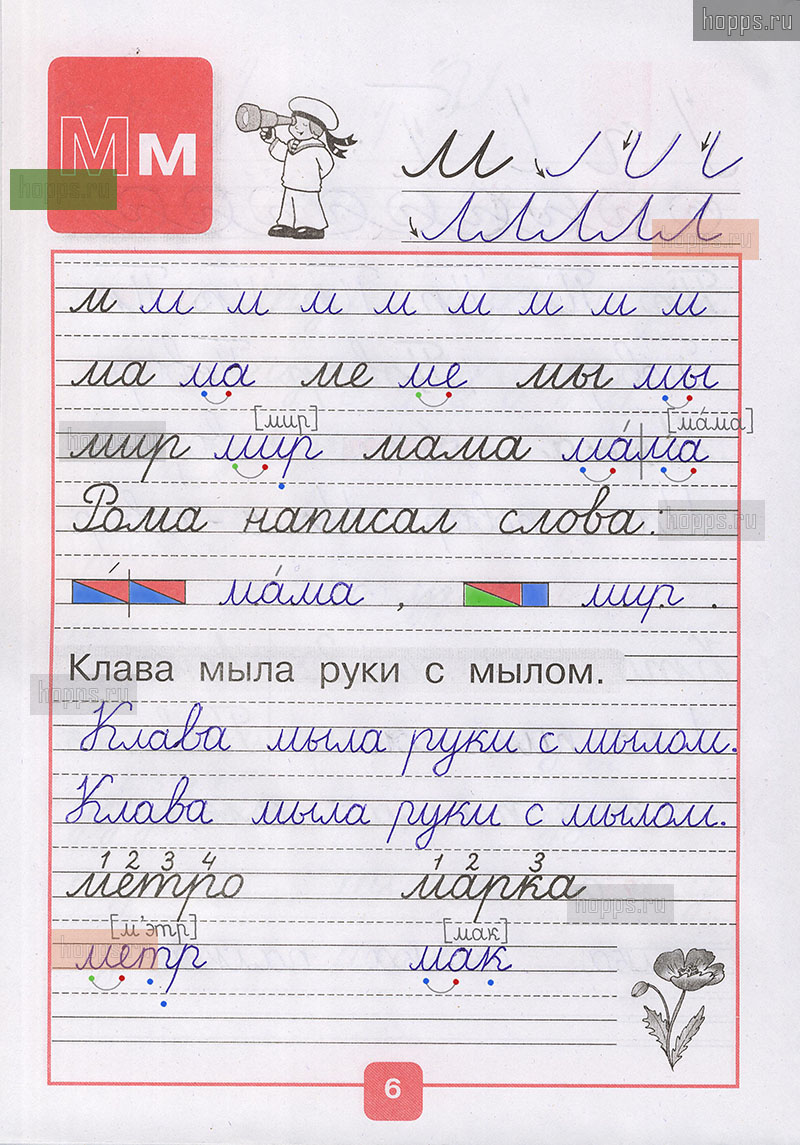 hopps.ru
Мм
м
hopps.ru
hopps.ru
м м м м м м м м м
ма ма ме ме мы мы
[мир] [ма́ма]
hopps.ru
мир мир мама ма́|ма
Рома написал слова:
hopps.ru
ма́ма , мир .
Клава мыла руки с мылом.
hopps.ru
Клава мыла руки с мылом.
Клава мыла руки с мылом.
1 2 3 4 1 2 3
метро марка
hopps.ru
[м'этр] [мак]
hopps.ru
метр мак
6